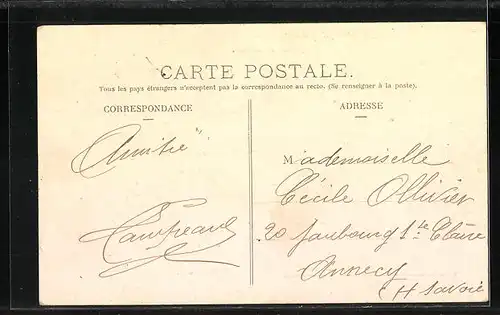 CARTE POSTALE.
Tous les pays étrangers n'acceptent pas la correspondance au recto. (Se renseigner à la poste).
CORRESPONDANCE
ADRESSE
Amitié
Mademoiselle
Cécile Ollivier
20 faubourg Ste Claire
Annecy
H Savoie